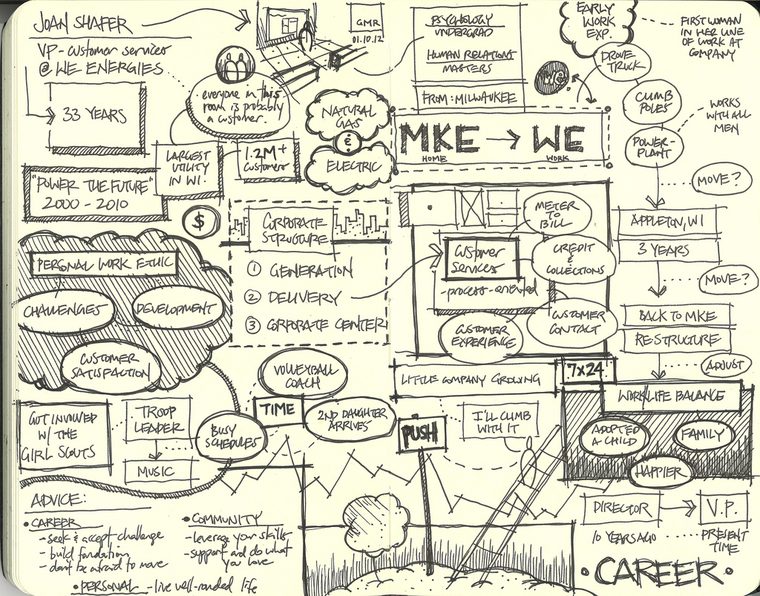 JOAN SHAFER
VP - CUSTOMER SERVICES
@ WE ENERGIES
33 YEARS
"POWER THE FUTURE"
2000 - 2010
everyone in this
room is probably
a customer.
LARGEST
UTILITY
IN WI.
1.2M+
customers
GMR
01.10.12
NATURAL
GAS
€
ELECTRIC
PSYCHOLOGY
UNDERGRAD
HUMAN RELATIONS
MASTERS
FROM: MILWAUKEE
MKE → WE
HOME
WORK
EARLY
WORK
EXP.
WE
FIRST WOMAN
IN HER LINE
OF WORK AT
COMPANY
DROVE
TRUCK
CLIMB
POLES
POWER-
PLANT
WORKS
WITH ALL
MEN
MOVE?
APPLETON, WI
3 YEARS
MOVE?
BACK TO MKE
RE-STRUCTURE
ADJUST
$
CORPORATE
STRUCTURE
1 GENERATION
2 DELIVERY
3 CORPORATE CENTER
METER
TO
BILL
CUSTOMER
SERVICES
-process-oriented
CREDIT
&
COLLECTIONS
CUSTOMER
CONTACT
CUSTOMER
EXPERIENCE
PERSONAL WORK ETHIC
CHALLENGES
DEVELOPMENT
CUSTOMER
SATISFACTION
GOT INVOLVED
W/ THE
GIRL SCOUTS
TROOP
LEADER
MUSIC
BUSY
SCHEDULES
VOLLEYBALL
COACH
TIME
2ND DAUGHTER
ARRIVES
LITTLE COMPANY GROWING
7x24
PUSH
I'LL CLIMB
WITH IT
WORK LIFE BALANCE
ADOPTED
A CHILD
FAMILY
HAPPIER
DIRECTOR → V.P.
10 YEARS AGO
PRESENT
TIME
ADVICE:
• CAREER
- seek & accept challenge
- build foundation
- don't be afraid to move
• COMMUNITY
- leverage your skills
- support and do what
you love
• PERSONAL - live well-rounded life
• CAREER •